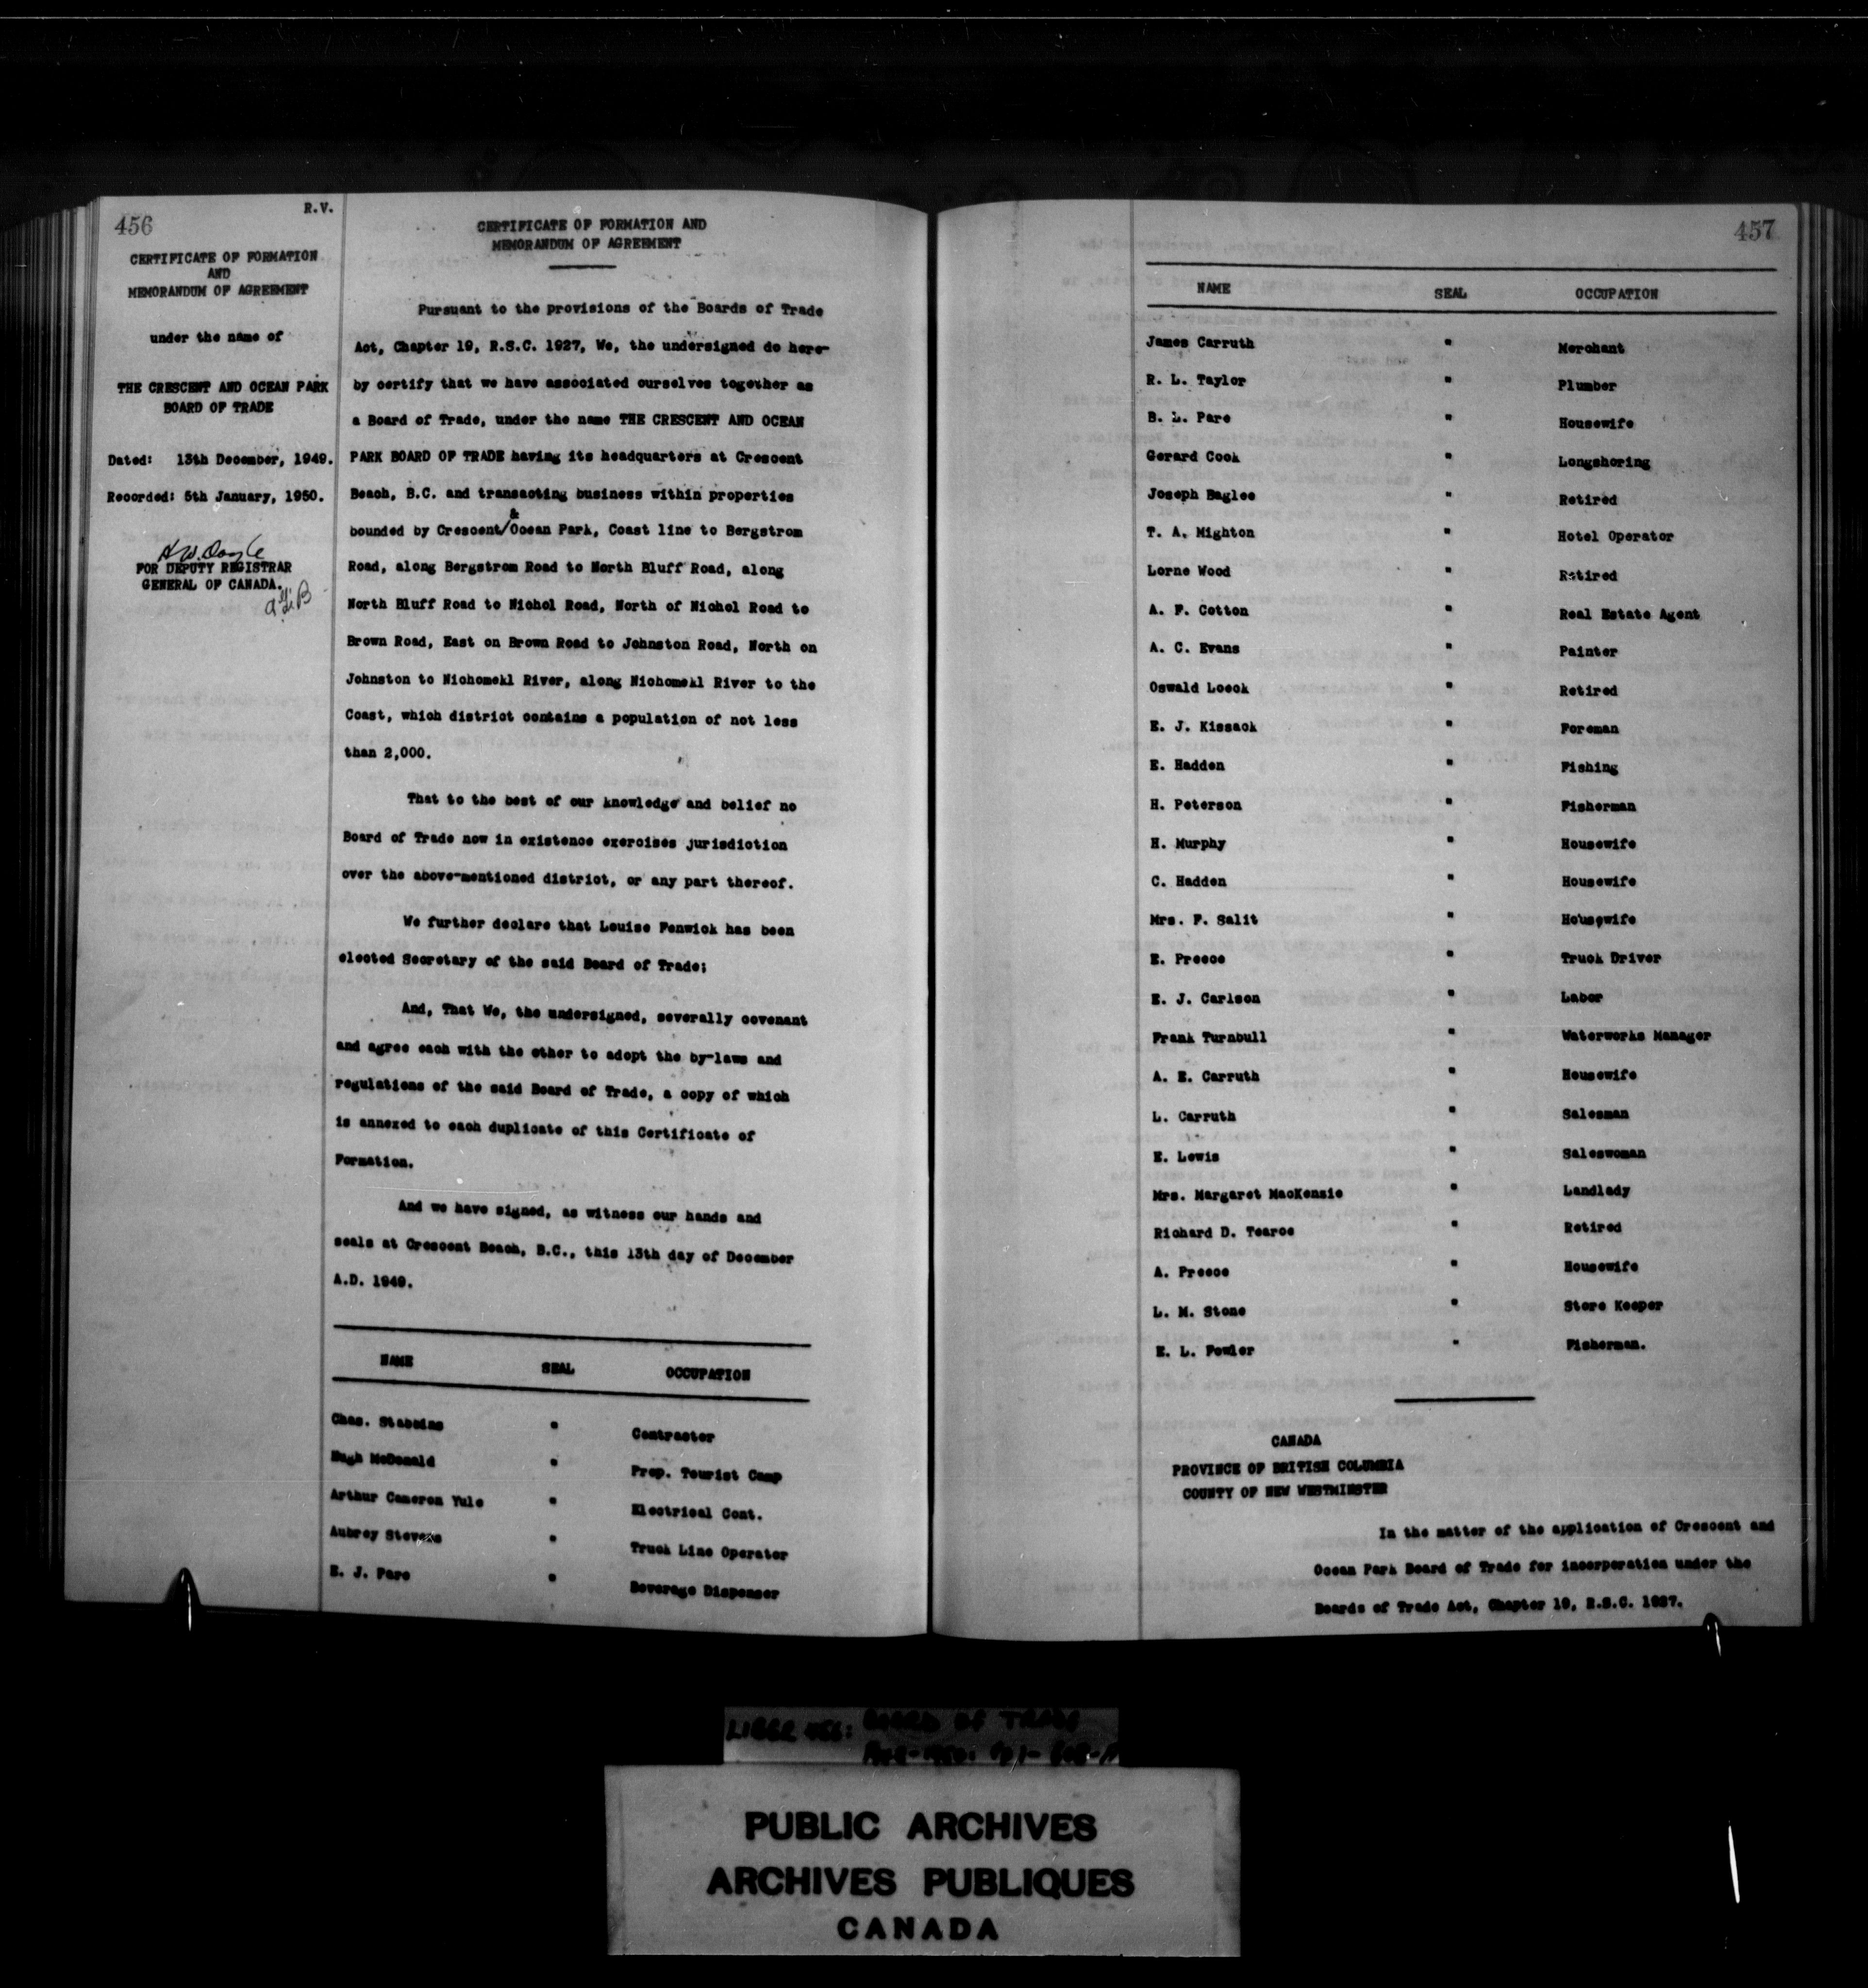 456
R.V.
CERTIFICATE OF FORMATION
AND
MEMORANDUM OF AGREEMENT
under the name of
THE CRESCENT AND OCEAN PARK
BOARD OF TRADE
Dated: 13th December, 1949.
Recorded: 5th January, 1950.
FOR DEPUTY REGISTRAR
GENERAL OF CANADA.
CERTIFICATE OF FORMATION AND
MEMORANDUM OF AGREEMENT
Pursuant to the provisions of the Boards of Trade
Act, Chapter 19, R.S.C. 1927, We, the undersigned do here-
by certify that we have associated ourselves together as
a Board of Trade, under the name THE CRESCENT AND OCEAN
PARK BOARD OF TRADE having its headquarters at Crescent
Beach, B.C. and transacting business within properties
bounded by Crescent/&Ocean Park, Coast line to Bergstrom
Road, along Bergstrom Road to North Bluff Road, along
North Bluff Road to Nichol Road, North of Nichol Road to
Brown Road, East on Brown Road to Johnston Road, North on
Johnston to Nichomekl River, along Nichomekl River to the
Coast, which district contains a population of not less
than 2,000.
That to the best of our knowledge and belief no
Board of Trade now in existence exercises jurisdiction
over the above-mentioned district, or any part thereof.
We further declare that Louise Fenwick has been
elected Secretary of the said Board of Trade;
And, That We, the undersigned, severally covenant
and agree each with the other to adopt the by-laws and
regulations of the said Board of Trade, a copy of which
is annexed to each duplicate of this Certificate of
Formation.
And we have signed, as witness our hands and
seals at Crescent Beach, B.C., this 13th day of December
A.D. 1949.
NAME SEAL OCCUPATION
Chas. Stebbins " Contractor
Hugh McDonald " Prop. Tourist Camp
Arthur Cameron Yule " Electrical Cont.
Aubrey Stevens " Truck Line Operator
E. J. Pare " Beverage Dispenser
457
NAME SEAL OCCUPATION
James Carruth " Merchant
R. L. Taylor " Plumber
B. L. Pare " Housewife
Gerard Cook " Longshoring
Joseph Baglee " Retired
T. A. Mighton " Hotel Operator
Lorne Wood " Retired
A. F. Cotton " Real Estate Agent
A. C. Evans " Painter
Oswald Loeck " Retired
E. J. Kissack " Foreman
E. Hadden " Fishing
H. Peterson " Fisherman
H. Murphy " Housewife
C. Hadden " Housewife
Mrs. F. Salit " Housewife
E. Preece " Truck Driver
E. J. Carlson " Labor
Frank Turnbull " Waterworks Manager
A. E. Carruth " Housewife
L. Carruth " Salesman
E. Lewis " Saleswoman
Mrs. Margaret MacKenzie " Landlady
Richard D. Tearoe " Retired
A. Preece " Housewife
L. M. Stone " Store Keeper
E. L. Fowler " Fisherman.
CANADA
PROVINCE OF BRITISH COLUMBIA
COUNTY OF NEW WESTMINSTER
In the matter of the application of Crescent and
Ocean Park Board of Trade for incorporation under the
Boards of Trade Act, Chapter 19, R.S.C. 1927.
LIBER 456: BOARD OF TRADE
PUBLIC ARCHIVES
ARCHIVES PUBLIQUES
CANADA